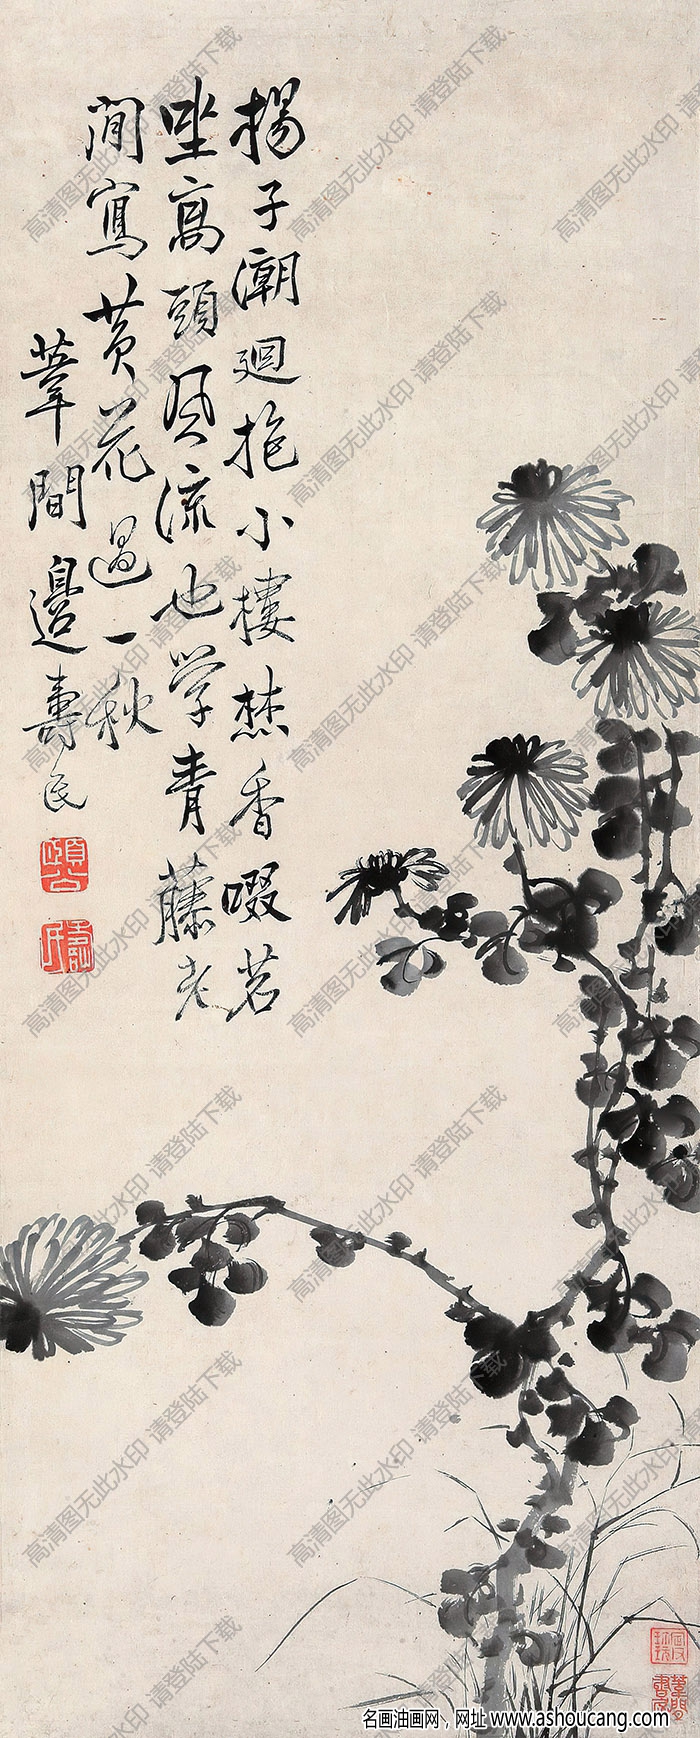 揚子潮迴抱小樓焚香啜茗
坐高頭風流也学青藤老
閒寫黄花過一秋
葦間邊壽民
頤公
壽民
高清图无此水印 请登陆下载
名画油画网，网址 www.ashoucang.com